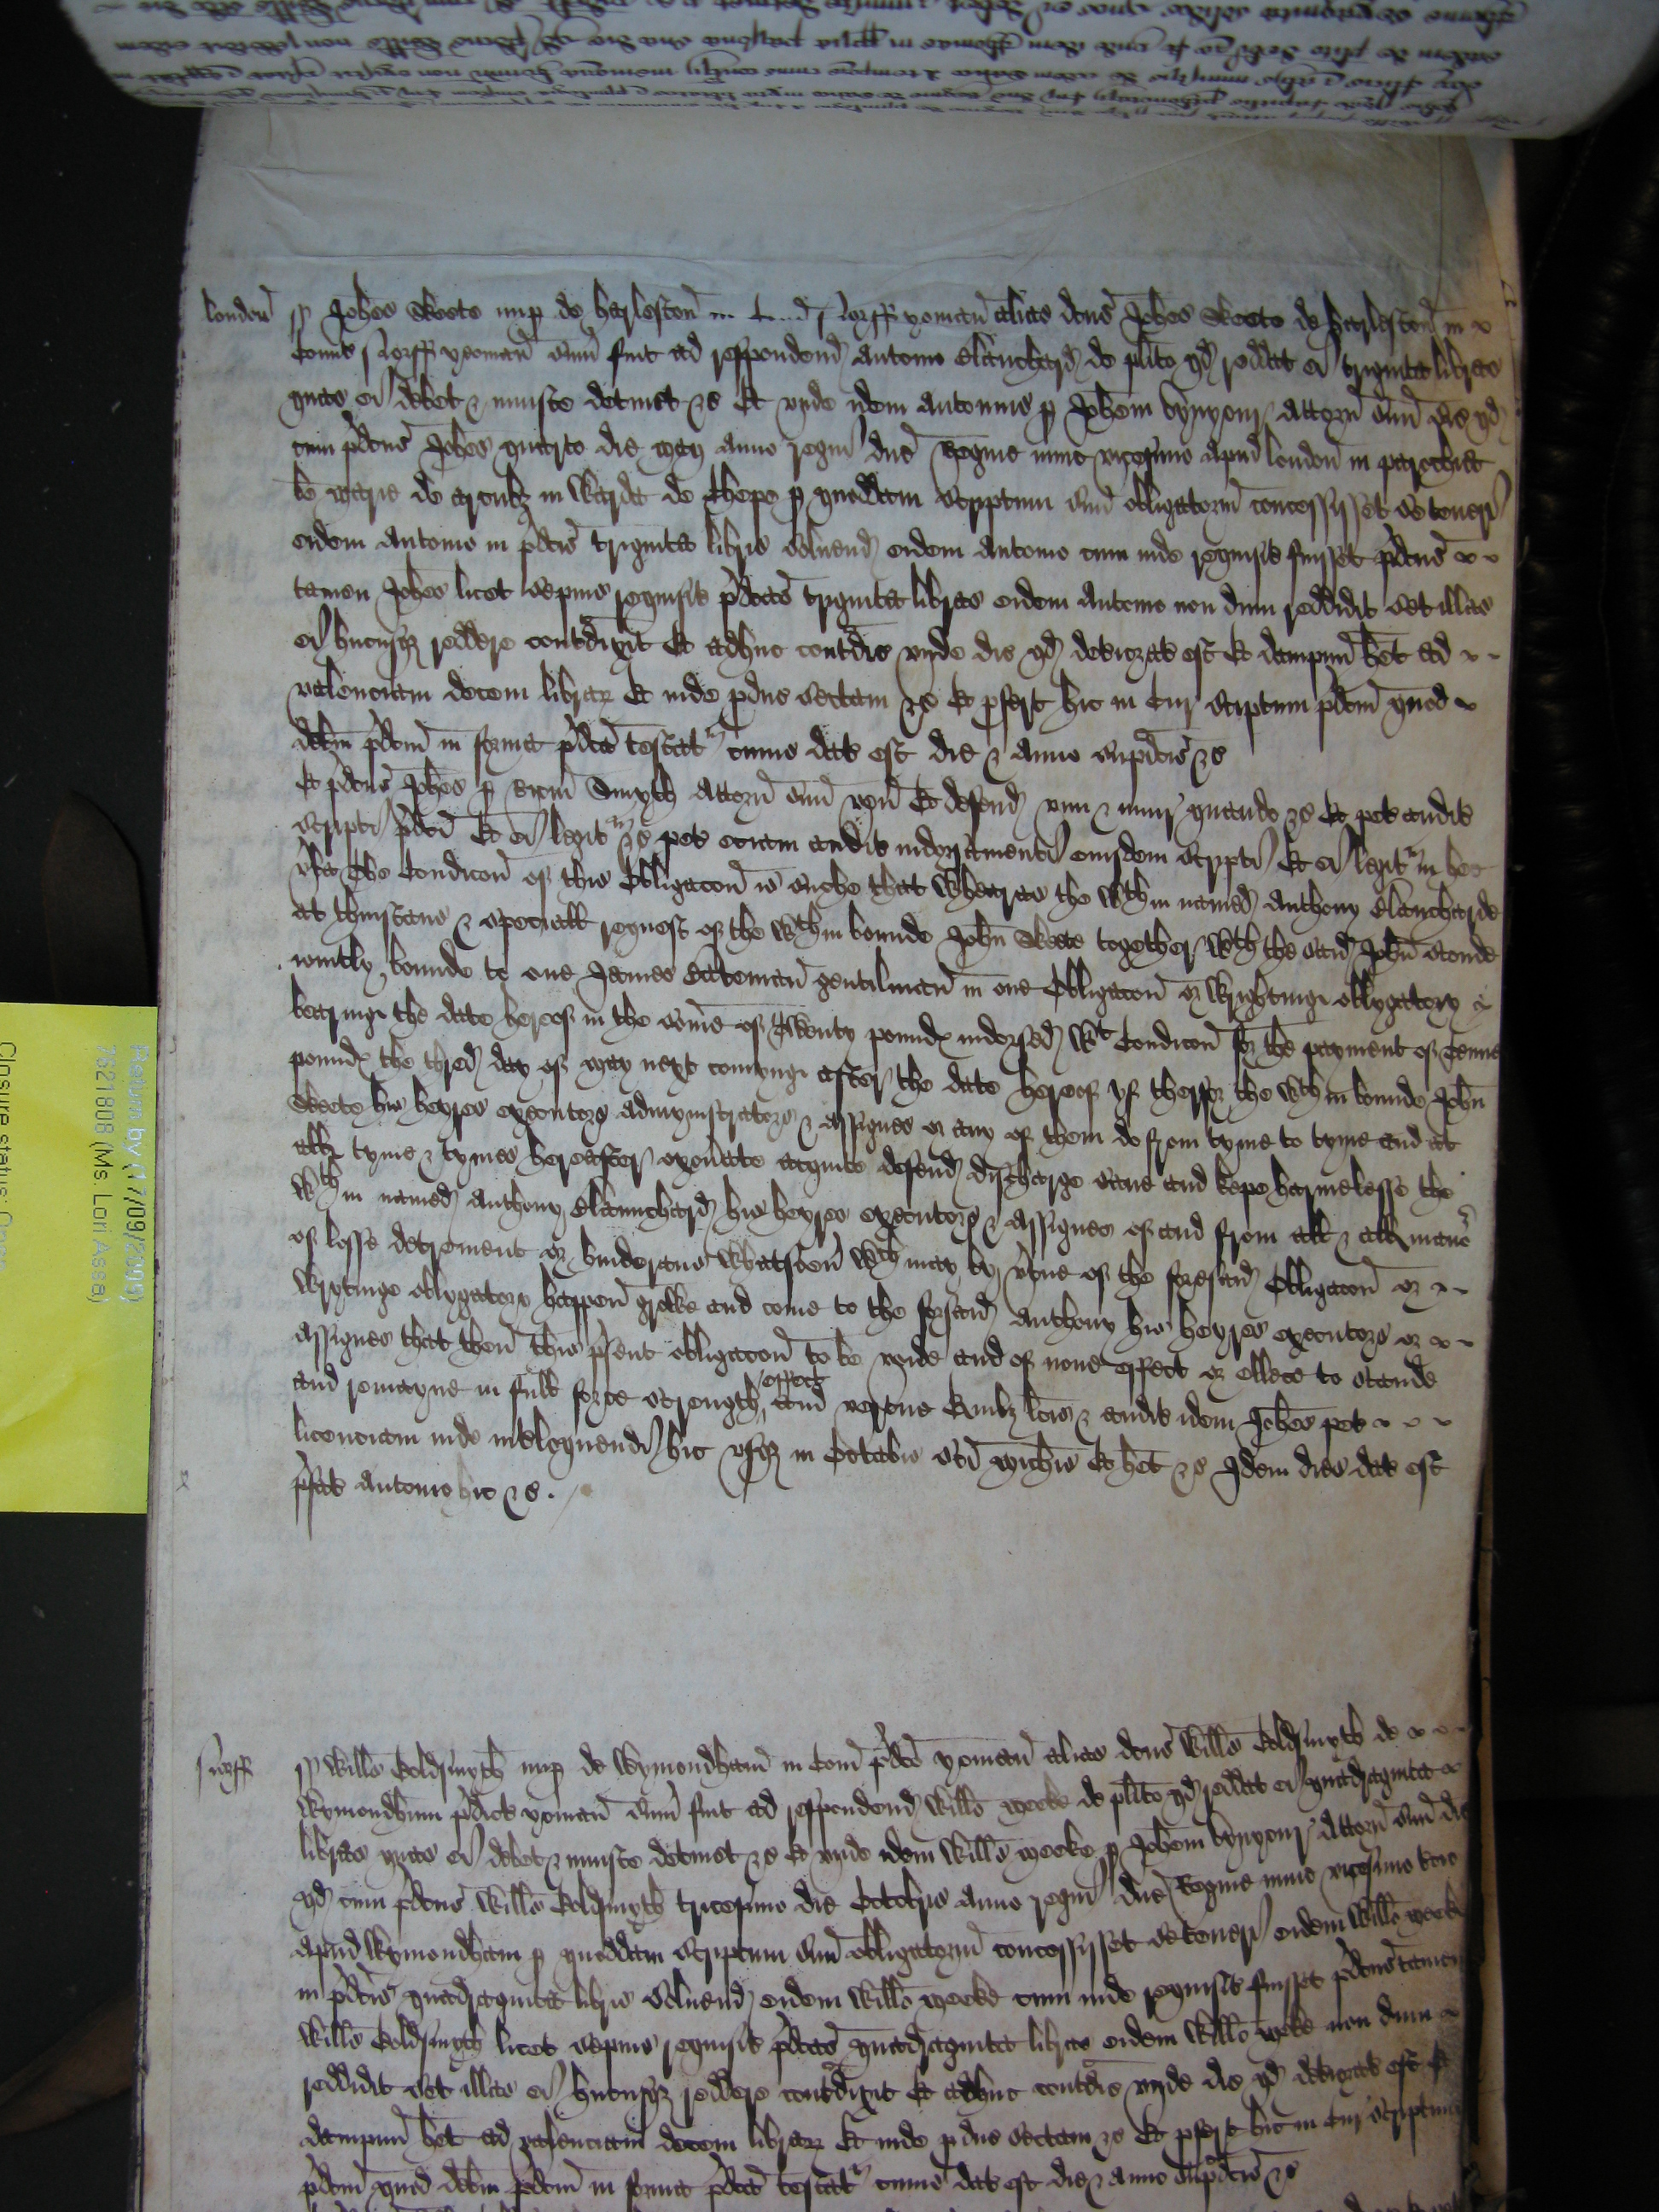 London ss Johes Skete nup de harleston in Com Norff yoman alias dcus Johes Skete de harleston in
Comit Norff yeoman sum fuit ad respondend Antonio Blanchard de plito qd reddat ei triginta libras
quas ei debet & iniuste detinet &c Et unde idem Antonius p Johem Bynyon Attorn suu dic qd
cum pdcus Johes quarto die May anno regni dne Regine nunc vicesimo apud London in parochia
be Marie de Arcubz in Warda de Chepe p quoddam scriptum suu obligatoriu concessisset se teneri
eidem Antonio in pdcis triginta libris solvend eidem Antonio cum inde requisit fuisset pdcus
tamen Johes licet sepius requisit pdcas triginta libras eidem Antonio non dum reddidit set illas
ei hucusqz reddere contradixit Et adhuc contradic unde dic qd deteriorat est Et dampnu het ad
valenciam decem librar Et inde pduc sectam &c Et pfert hic in Cur scriptum pdcm quod
debm pdcm in forma pdca testat cuius dat est die & anno supdcis &c
Et pdcus Johes p Smyth Attorn suu ven Et defend vim & iniur quando &c Et pet audit
scripti pdci Et ei legit &c pet eciam audit indorsamenti eiusdem scripti Et ei legit in hec
vba The Condicon of this Obligacon is suche that Wheras the wthin named Anthony Blancharde
at thinstans & speciall request of the wthin bounde John Skete together wth the said John stonde
iointly bounde to one James Bateman gentilman in one Obligacon or Wrightinge obligatory
bearinge the date hereof in the some of Twenty pounds indorsed wt Condicon for the payment of Tenne
pounds the third day of May next comynge after the date hereof yf therfor the wthin bounde John
Skete his heyres executors admynistrators & assignes or any of them do from tyme to tyme and at
all tyme & tymes hereafter exonate acquite defend discharge save and kepe harmelesse the
wthin named Anthony Blanchard his heyres executors & assignes of and from all & all maner
of losse detrement or hinderans whatsoeu wch may by vtue of the foresaid Obligacon or
Wrytinge obligatory happen growe and come to the forsaid Anthony his heyres executors or
assignes that then this psent obligacon to be voide and of none effect or elles to stande
and remayne in full force strength effect and vertue Quibz lcis & audit idem Johes pet
licenciam inde interloquendi hic usqz in Octabis sci Michis Et het &c Idem dies dat est
pfat Antonio hic &c.
Norff ss Willms Goldsmyth nup de Wymondham in Com pdca yoman alias dcus Willms Goldsmyth de
Wymondham pdict yoman sum fuit ad respondend Willmo Meeke de plito qd reddat ei quadraginta
libras quas ei debet & iniuste detinet &c Et unde idem Willms Meeke p Johem Bynyon Attorn suu dic
qd cum pdcus Willms Goldsmyth tricesimo die Octobris anno regni dne Regine nunc vicesimo
apud Wymondham p quoddam scriptum suu obligatoriu concessisset se teneri eidem Willmo Meeke
in pdcis quadraginta libris solvend eidem Willmo Meeke cum inde requisit fuisset pdcus tamen
Willms Goldsmyth licet sepius requisit pdcas quadraginta libras eidem Willmo Meke non dum
reddidit set illas ei hucusqz reddere contradixit Et adhuc contradic unde dic qd deteriorat est Et
dampnu het ad valenciam decem librar Et inde pduc sectam &c Et pfert hic in Cur scriptum
pdcm quod debm pdcm in forma pdca testat cuius dat est die & anno supdcis &c
Return by (17/09/2009)
7621808 (Ms. Lori Assa)
Closure status: